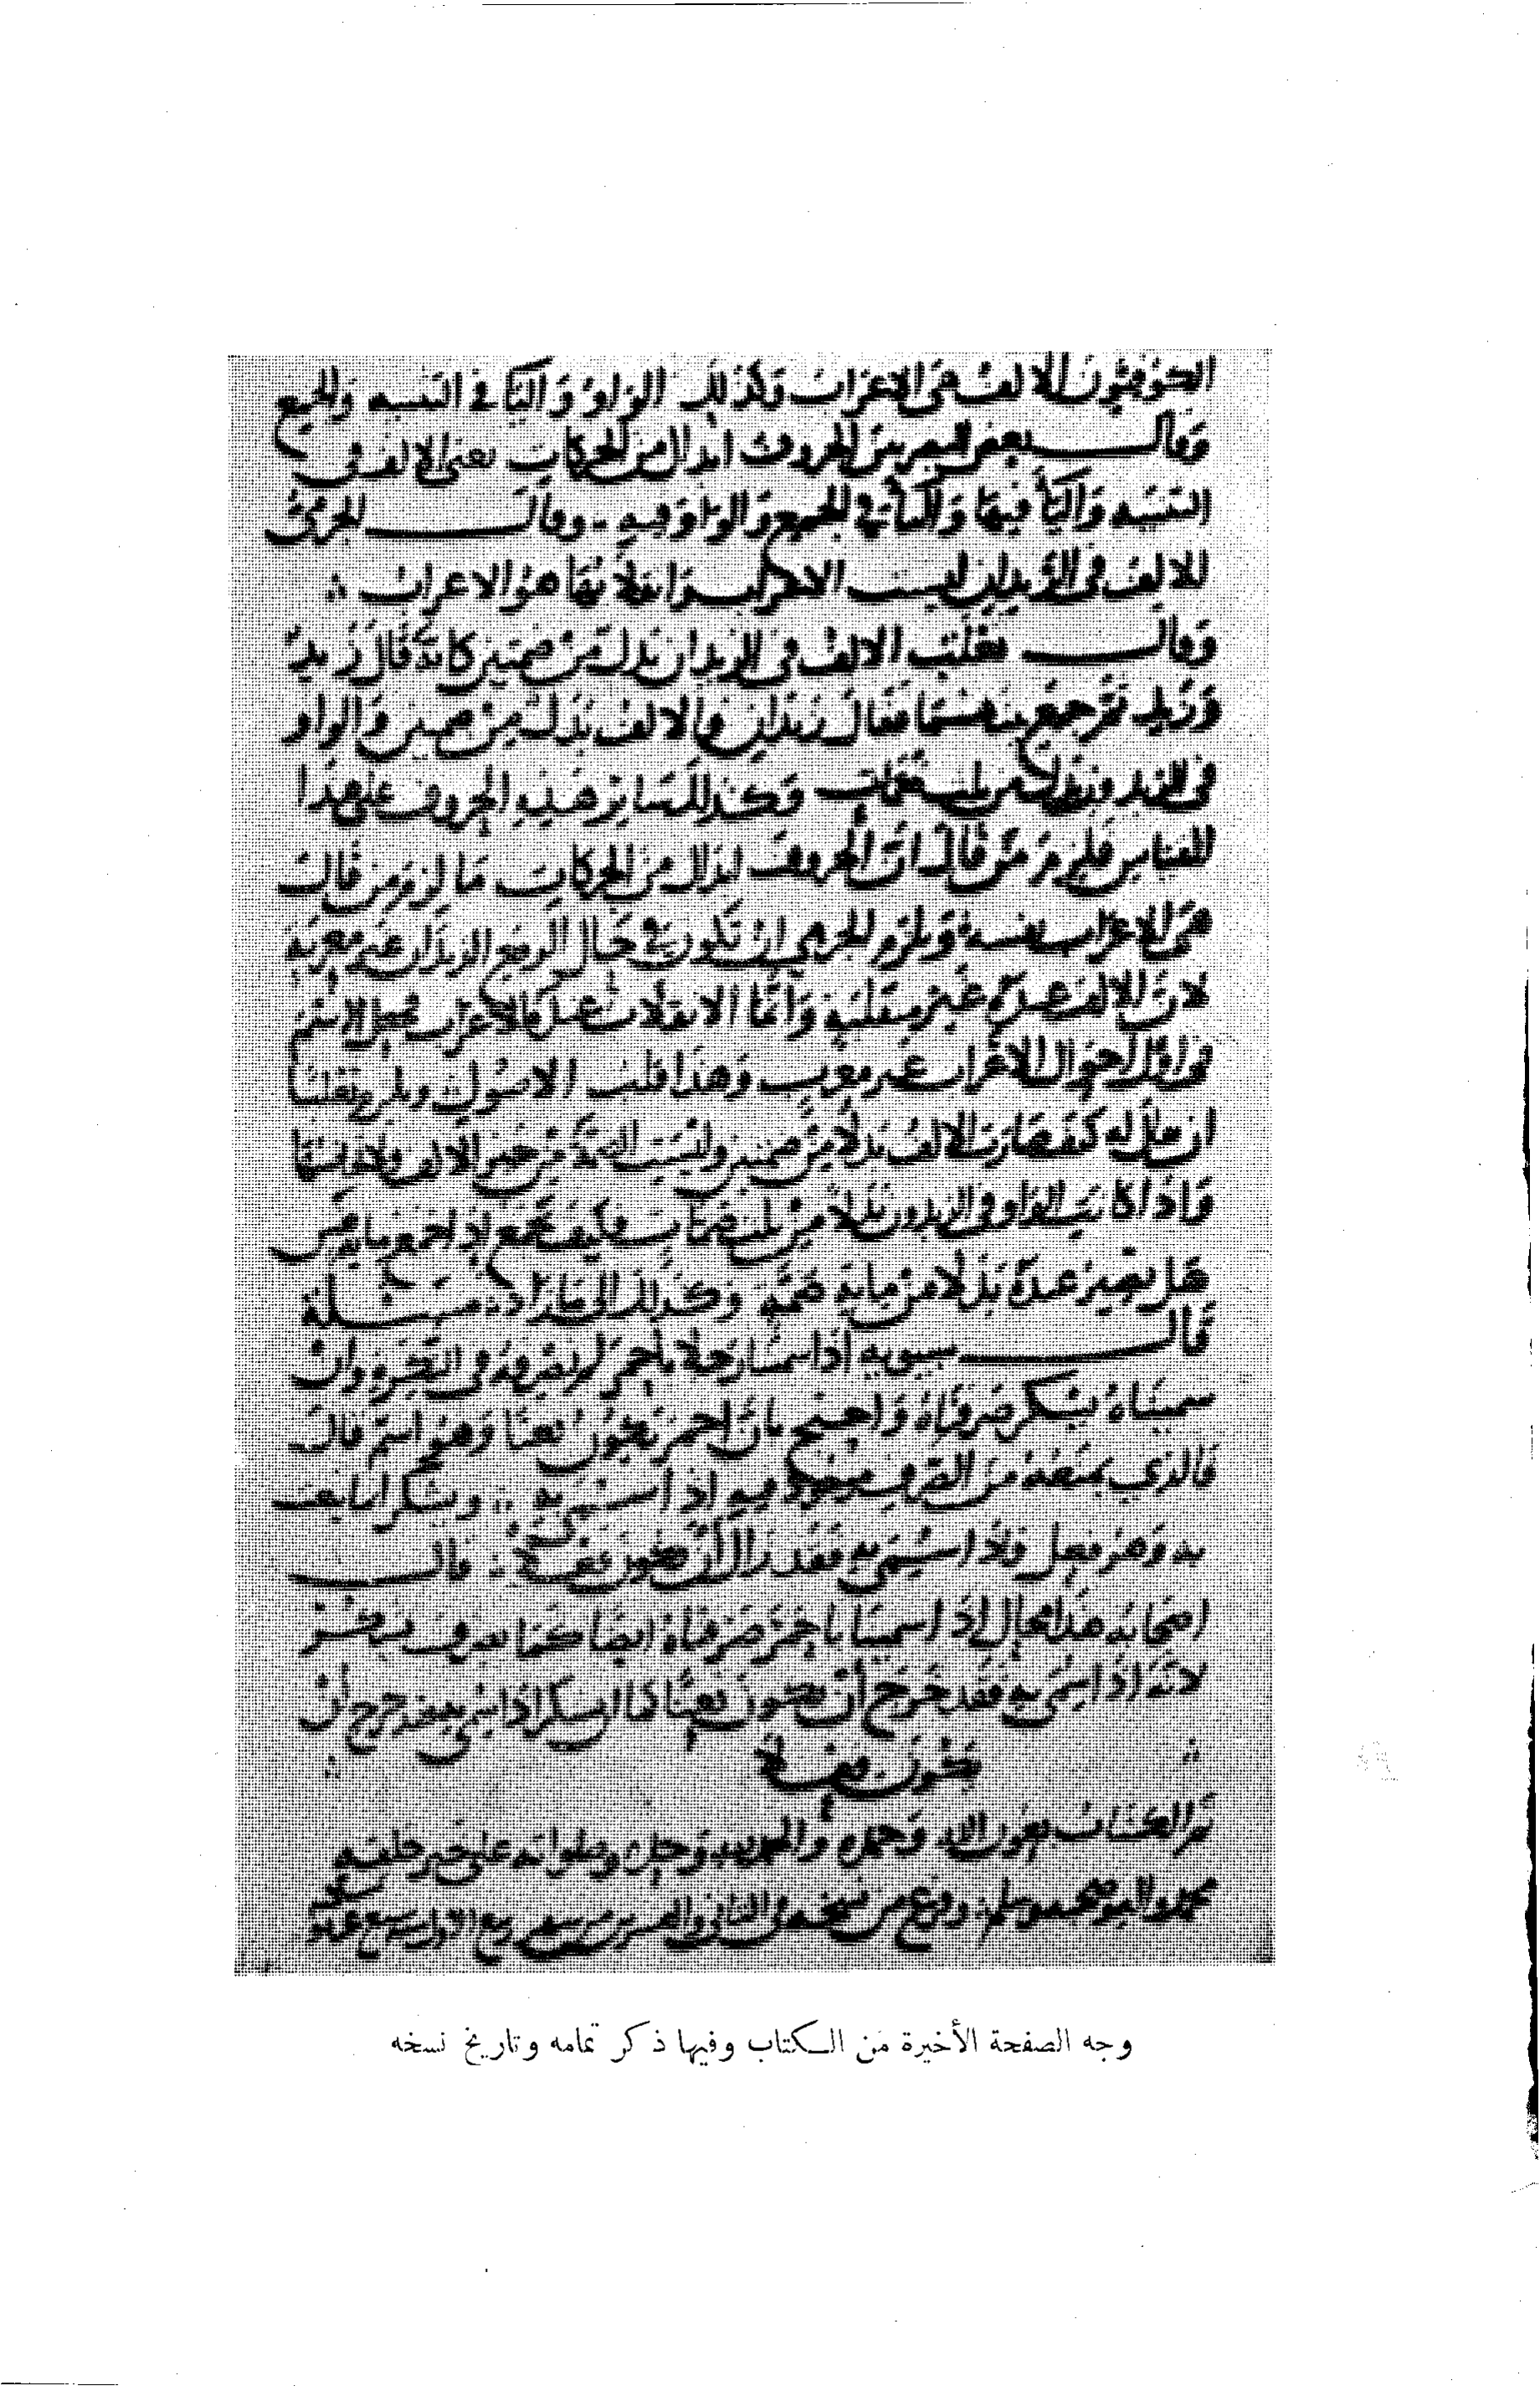 الكوفيون الالف هى الاعراب وكذلك الواو واليا فى التثنيه والجمع
وقال بعض البصريين الحروف ابدال من الحركات يعنى الالف فى
التثنيه واليا فيها واليا فى الجميع والواو فيه وقال الجرمى
الالف فى الزيدان ليست الاعراب انقلابها هو الاعراب
وقال ثعلب الالف فى الزيدان بدل من ضمتين كانه قال زيد
وزيد ثم جمع بينهما فقال زيدان فالالف بدل من ضمتين والواو
فى الزيدون بدل من ثلث ضمات وكذلك ساير هذه الحروف على هذا
القياس فيلزم من قال ان الحروف ابدال من الحركات ما لزم من قال
هى الاعراب نفسه ويلزم الجرمى ان تكون فى حال الرفع الزيدان غير معربه
لان الالف عنده غير منقلبه وانما الانقلاب عنده الاعراب فجعل الاسم
فى اول احوال الاعراب غير معرب وهذا قلب الاصول ويلزم ثعلبا
ان يقال له كيف صارت الالف بدلا من ضمتين وليست الضمة من جنس الالف
فاذا كانت الواو فى الزيدون بدلا من ثلث ضمات فكيف تجمع اذا جمع مايه
هل تصير عنده بدلا من مايه ضمة وكذلك الى ما زاد مسئلة
قال سيبويه اذا سمينا رجلا باحمر لم نصرفه فى النكره وان
سميناه بيشكر صرفناه واحتج بان احمر يكون نعتا وهو اسم قال
فالذي يمنعه من الصرف موجود فيه اذا سمى به ويشكر انما نعت
به وهو فعل فاذا سمى به فقد زال ان يكون فعلا قال
اصحابه هذا محال اذا سمينا باحمر صرفناه ايضا كما نصرف يشكر
لانه اذا سمى به فقد خرج ان يكون نعتا كما ان يشكر اذا سمى به فقد خرج ان
يكون فعلا
تم الكتاب بعون الله وحمده والحمد لله وحده وصلواته على خير خلقه
محمد واله وصحبه وسلم وفرغ من نسخه فى الثانى والعشرين من شهر ربيع الاول سنه سبع عشر
وجه الصفحة الأخيرة من الكتاب وفيها ذكر تمامه وتاريخ نسخه